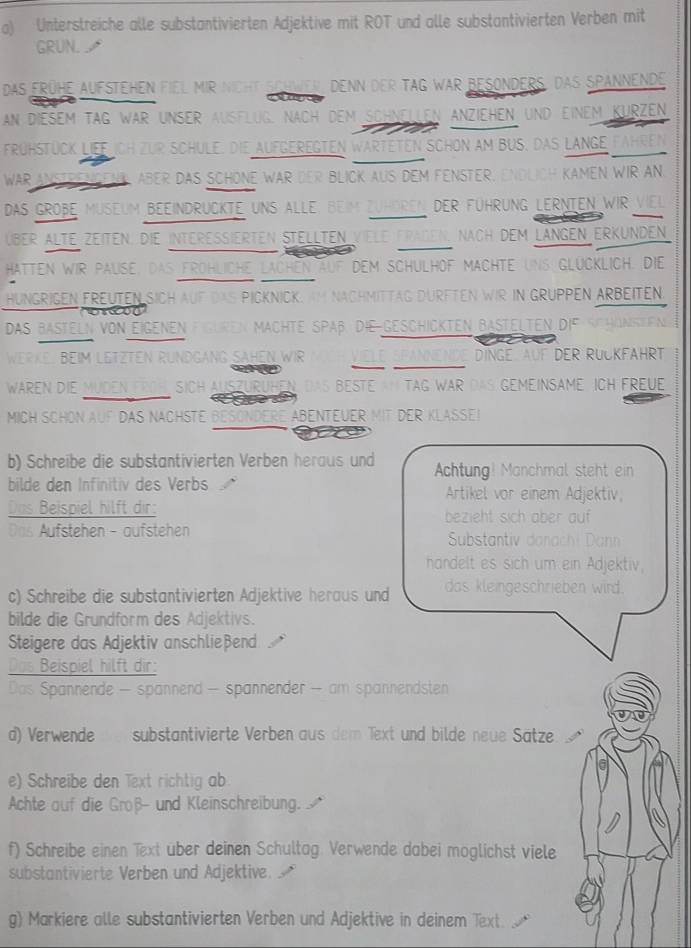 a) Unterstreiche alle substantivierten Adjektive mit ROT und alle substantivierten Verben mit
GRÜN.
DAS FRÜHE AUFSTEHEN FIEL MIR NICHT SCHWER, DENN DER TAG WAR BESONDERS. DAS SPANNENDE
AN DIESEM TAG WAR UNSER AUSFLUG. NACH DEM SCHNELLEN ANZIEHEN UND EINEM KURZEN
FRÜHSTÜCK LIEF ICH ZUR SCHULE. DIE AUFGEREGTEN WARTETEN SCHON AM BUS. DAS LANGE FAHREN
WAR ANSTRENGEND, ABER DAS SCHÖNE WAR DER BLICK AUS DEM FENSTER. ENDLICH KAMEN WIR AN.
DAS GROßE MUSEUM BEEINDRUCKTE UNS ALLE. BEIM ZUHÖREN DER FÜHRUNG LERNTEN WIR VIEL
ÜBER ALTE ZEITEN. DIE INTERESSIERTEN STELLTEN VIELE FRAGEN. NACH DEM LANGEN ERKUNDEN
HATTEN WIR PAUSE. DAS FRÖHLICHE LACHEN AUF DEM SCHULHOF MACHTE UNS GLÜCKLICH. DIE
HUNGRIGEN FREUTEN SICH AUF DAS PICKNICK. AM NACHMITTAG DURFTEN WIR IN GRUPPEN ARBEITEN.
DAS BASTELN VON EIGENEN FIGUREN MACHTE SPAß. DIE GESCHICKTEN BASTELTEN DIE SCHÖNSTEN
WERKE. BEIM LETZTEN RUNDGANG SAHEN WIR NOCH VIELE SPANNENDE DINGE. AUF DER RÜCKFAHRT
WAREN DIE MÜDEN FROH, SICH AUSZURUHEN. DAS BESTE AM TAG WAR DAS GEMEINSAME. ICH FREUE
MICH SCHON AUF DAS NÄCHSTE BESONDERE ABENTEUER MIT DER KLASSE!
b) Schreibe die substantivierten Verben heraus und
bilde den Infinitiv des Verbs.
Das Beispiel hilft dir:
Das Aufstehen - aufstehen
Achtung! Manchmal steht ein
Artikel vor einem Adjektiv,
bezieht sich aber auf
Substantiv danach! Dann
handelt es sich um ein Adjektiv,
das kleingeschrieben wird.
c) Schreibe die substantivierten Adjektive heraus und
bilde die Grundform des Adjektivs.
Steigere das Adjektiv anschließend.
Das Beispiel hilft dir:
Das Spannende – spannend – spannender – am spannendsten
d) Verwende substantivierte Verben aus dem Text und bilde neue Sätze.
e) Schreibe den Text richtig ab.
Achte auf die Groß- und Kleinschreibung.
f) Schreibe einen Text über deinen Schultag. Verwende dabei möglichst viele
substantivierte Verben und Adjektive.
g) Markiere alle substantivierten Verben und Adjektive in deinem Text.